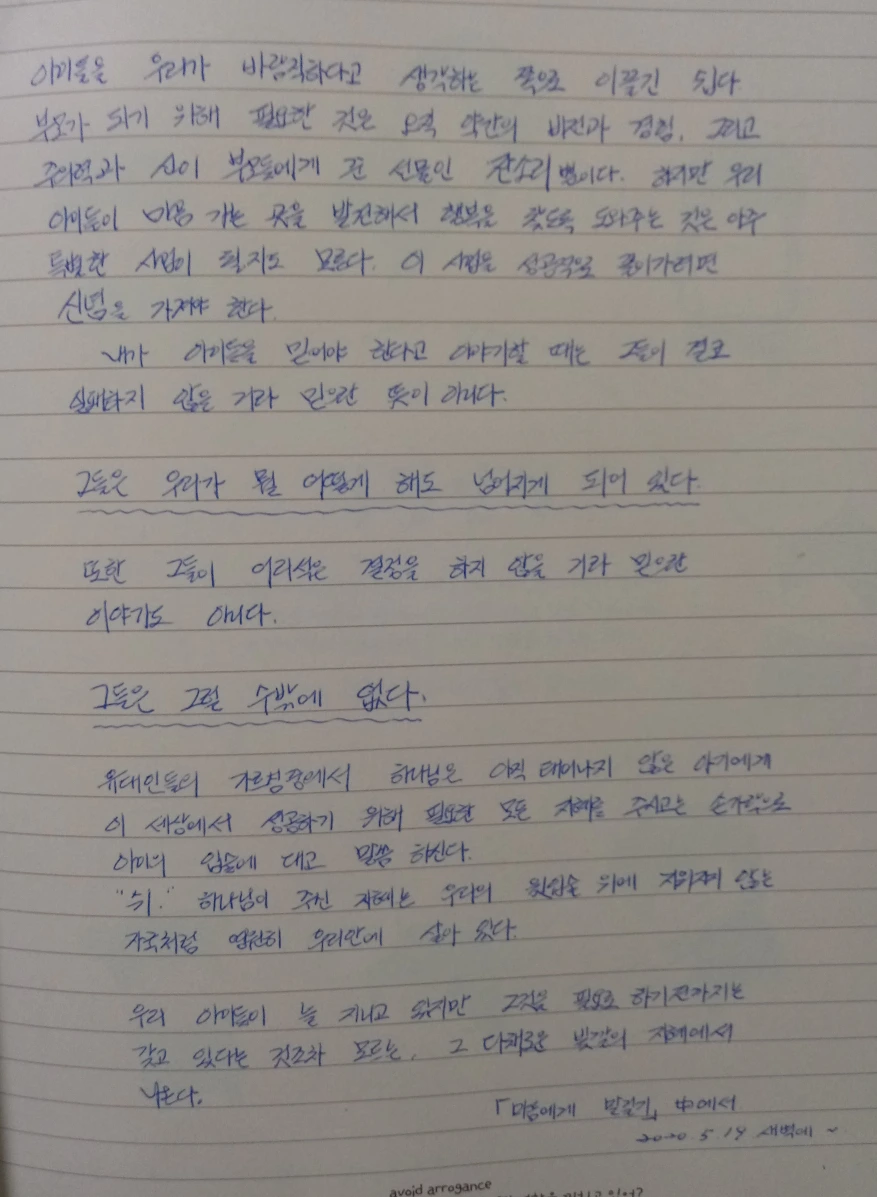 아이들을 우리가 바람직하다고 생각하는 쪽으로 이끌긴 쉽다
부모가 되기 위해 필요한 것은 오직 약간의 비전과 경험, 그리고
주의력과 신이 부모들에게 준 선물인 잔소리 뿐이다. 하지만 우리
아이들이 마음 가는 곳을 발견해서 행복을 찾도록 도와주는 것은 아주
특별한 사업이 될지도 모른다. 이 사업을 성공적으로 끌어가려면
신념을 가져야 한다.
내가 아이들을 믿어야 한다고 이야기할 때는 그들이 결코
실패하지 않을 거라 믿으란 뜻이 아니다.
그들은 우리가 뭘 어떻게 해도 넘어지게 되어 있다.
또한 그들이 어리석은 결정을 하지 않을 거라 믿으란
이야기도 아니다.
그들은 그럴 수밖에 없다.
유태인들의 가르침중에서 하나님은 아직 태어나지 않은 아기에게
이 세상에서 성공하기 위해 필요한 모든 지혜를 주시고는 손가락으로
아이의 입술에 대고 말씀 하신다.
"쉬." 하나님이 주신 지혜는 우리의 윗입술 위에 지워지지 않는
자국처럼 영원히 우리안에 살아 있다.
우리 아이들이 늘 지니고 있지만 그것을 필요로 하기전까지는
갖고 있다는 것조차 모르는, 그 다채로운 빛깔의 지혜에서
나온다.
「마음에게 말걸기」 中에서
2020. 5. 19 새벽에 ~
avoid arrogance